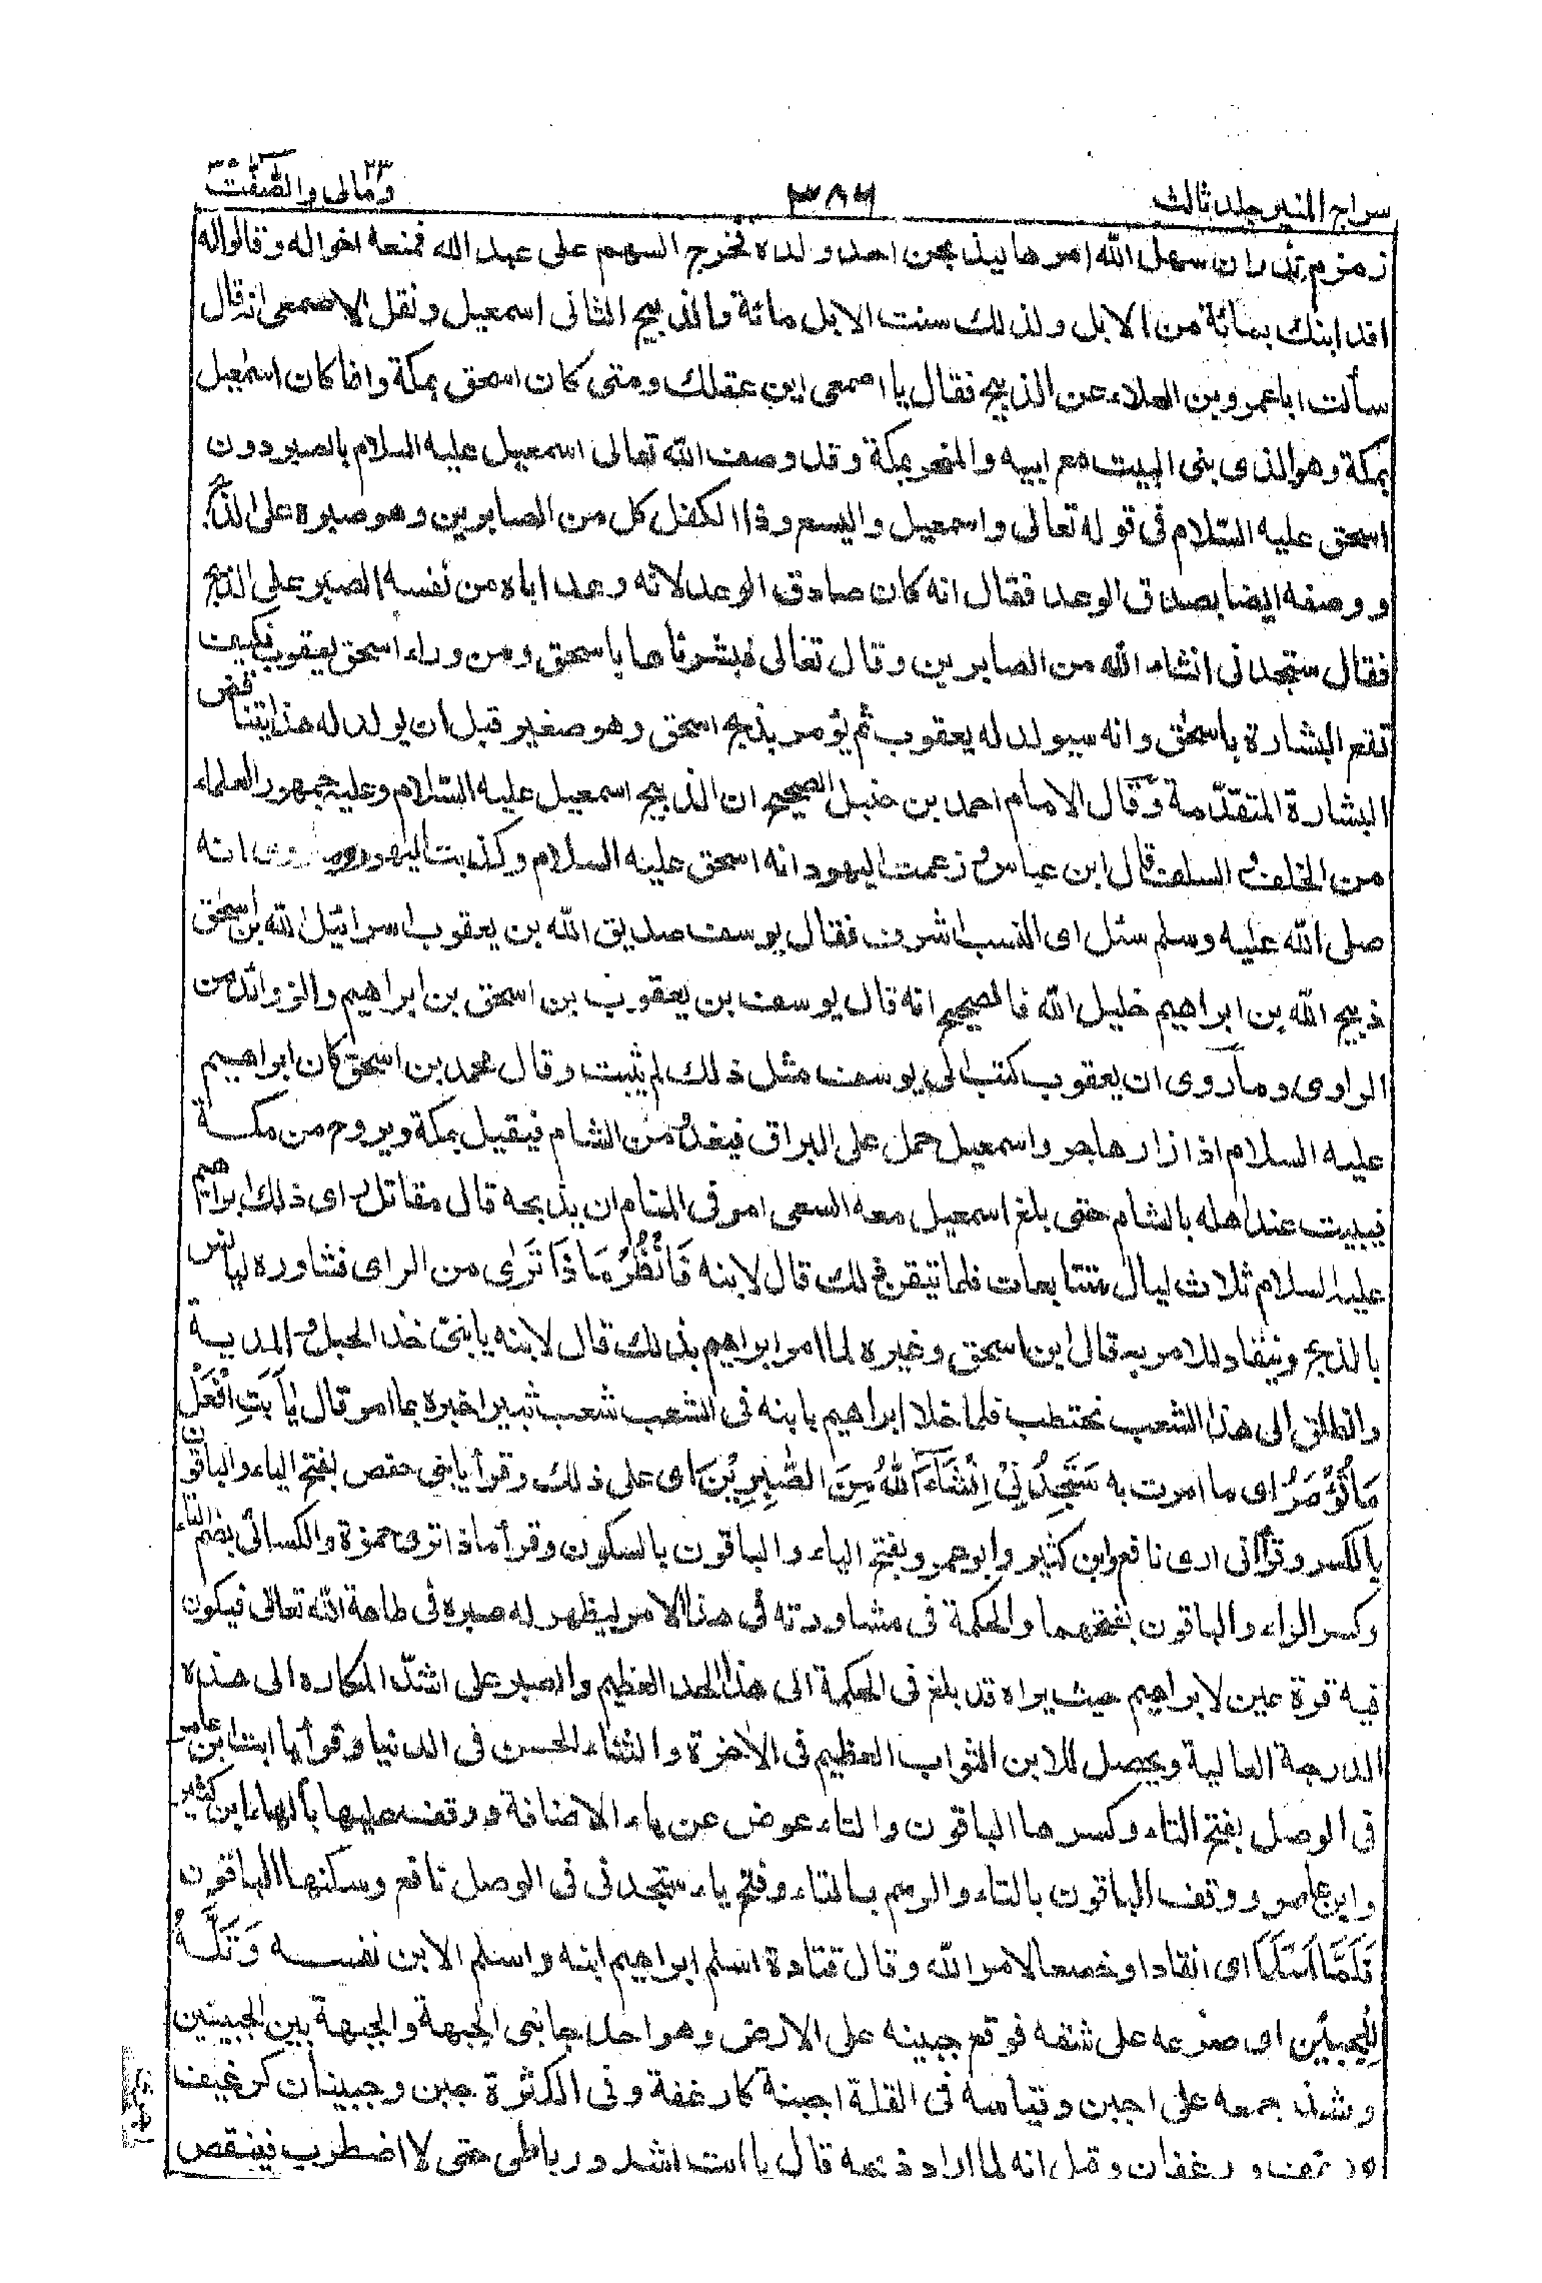 سراج المنير جلد ثالث ٣٨٦ ومالى والصّٰفّٰت ٢٣
زمزم نذر ان سهل الله امرها ليذبحن احد ولده فخرج السهم على عبد الله فمنعه اخواله وقالوا له
افد ابنك بمائة من الابل ولذلك سنت الابل مائة والذبيح الثانى اسمعيل ونقل الاصمعى انه قال
سألت ابا عمرو بن العلاء عن الذبيح فقال يا اصمعى اين عقلك ومتى كان اسحق بمكة وانما كان اسمعيل
بمكة وهو الذى بنى البيت مع ابيه والمنحر بمكة وقد وصف الله تعالى اسمعيل عليه السلام بالصبر دون
اسحق عليه السّلام فى قوله تعالى واسمعيل واليسع وذا الكفل كل من الصابرين وهو صبره على الذبح
ووصفه ايضا بصدق الوعد فقال انه كان صادق الوعد لانه وعد اباه من نفسه الصبر على الذبح
فقال ستجدنى انشاء الله من الصابرين وقال تعالى فبشرناها باسحق ومن وراء اسحق يعقوب فكيف
تقع البشارة باسحق وانه سيولد له يعقوب ثم يؤمر بذبح اسحق وهو صغير قبل ان يولد له هذا يتناقض
البشارة المتقدّمة وقال الامام احمد بن حنبل الصحيح ان الذبيح اسمعيل عليه السّلام وعليه جمهور العلماء
من الخلف و السلف قال ابن عباس زعمت اليهود انه اسحق عليه السلام وكذبت اليهود وما روى انه
صلى الله عليه وسلم سئل اى النسب اشرف فقال يوسف صديق الله بن يعقوب اسرائيل الله بن اسحق
ذبيح الله بن ابراهيم خليل الله فالصحيح انه قال يوسف بن يعقوب بن اسحق بن ابراهيم والزوائد من
الراوى وما روى ان يعقوب كتب الى يوسف مثل ذلك لم يثبت وقال محمد بن اسحق كان ابراهيم
عليه السلام اذا زار هاجر واسمعيل حمل على البراق فيغدو من الشام فيقيل بمكة ويروح من مكة
فيبيت عند اهله بالشام حتى بلغ اسمعيل معه السعى امر فى المنام ان يذبحه قال مقاتل راى ذلك ابراهيم
عليه السلام ثلاث ليال متتابعات فلما تيقن ذلك قال لابنه فَانْظُرْ مَاذَا تَرٰى من الراى فشاوره ليانس
بالذبح وينقاد للامر به قال ابن اسحق وغيره لما امر ابراهيم بذلك قال لابنه يا بنى خذ الحبل و المدية
وانطلق الى هذا الشعب نحتطب فلما خلا ابراهيم بابنه فى الشعب شعب ثبير اخبره بما امر قال يٰٓاَبَتِ افْعَلْ
مَا تُؤْمَرُ اى ما امرت به سَتَجِدُنِىْ اِنْشَآءَ اللهُ مِنَ الصّٰبِرِيْنَ اى على ذلك وقرأ يا بنى حفص بفتح الياء والباقون
بالكسر وقرأ انى ارى نافع وابن كثير وابو عمرو بفتح الياء والباقون بالسكون وقرأ ماذا ترى حمزة والكسائى بضم التاء
وكسر الراء والباقون بفتحهما والحكمة فى مشاورته فى هذا الامر ليظهر له صبره فى طاعة الله تعالى فيكون
فيه قرة عين لابراهيم حيث يراه قد بلغ فى الحكمة الى هذا الحد العظيم والصبر على اشدّ المكاره الى هذه
الدرجة العالية ويحصل للابن الثواب العظيم فى الآخرة والثناء الحسن فى الدنيا وقرأ يا ابت ابن عامر
فى الوصل بفتح التاء وكسرها الباقون والتاء عوض عن ياء الاضافة ووقف عليها بالهاء ابن كثير
وابن عامر ووقف الباقون بالتاء والرسم بالتاء وفتح ياء ستجدنى فى الوصل نافع وسكنها الباقون
فَلَمَّا اَسْلَمَا اى انقادا وخضعا لامر الله وقال قتادة اسلم ابراهيم ابنه واسلم الابن نفسه وَتَلَّهُ
لِلْجَبِيْنِ اى صرعه على شقه فوقع جبينه على الارض وهو احد جانبى الجبهة والجبهة بين الجبينين
وشذ جمعه على اجبن وقياسه فى القلة اجبنة كارغفة وفى الكثرة جبن وجبينان كرغيف
ورغف ورغفان وقيل انه لما اراد ذبحه قال يا ابت اشدد رباطى حتى لا اضطرب فينقص